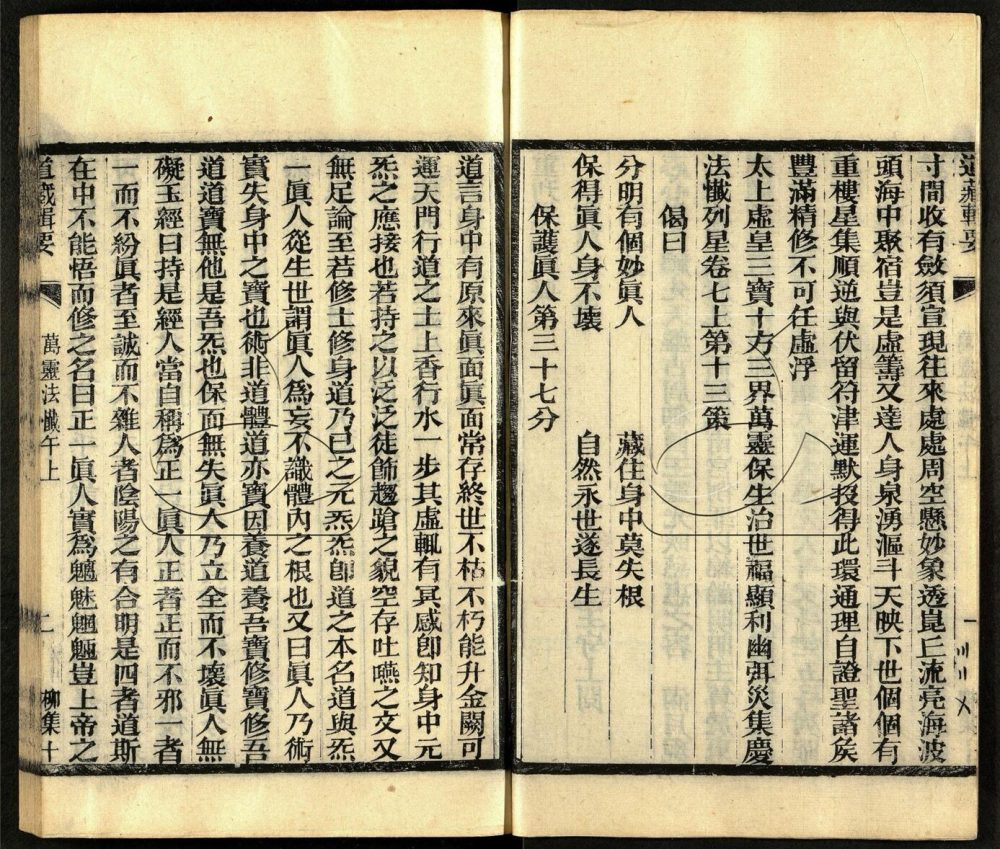 道藏輯要
寸間收有斂須宣現往來處處周空懸妙象透崑㐀流亮海波
頭海中聚宿豈是虛籌又達人身泉湧漚斗天映下世個個有
重樓星集順逆與伏留符津運默投得此環通理自證聖諸矦
豐滿精修不可任虛浮
太上虛皇三寶十方三界萬靈保生治世福顯利幽弭災集慶
法懺列星卷七上第十三策
偈曰
分明有個妙眞人 藏住身中莫失根
保得眞人身不壞 自然永世遂長生
保護眞人第三十七分
道言身中有原來眞面眞面常存終世不枯不朽能升金闕可
運天門行道之士上香行水一步其虛輒有冥感卽知身中元
炁之應接也若持之以泛泛徒飾趨蹌之貌空存吐嚥之文又
無足論至若修士修身道乃已之元炁炁卽道之本名道與炁
一眞人從生世謂眞人為妄不識體內之根也又曰眞人乃術
實失身中之寶也術非道體道亦寶因養道養吾寶修寶修吾
道道寶無他是吾炁也保而無失眞人乃立全而不壞眞人無
礙玉經曰持是經人當自稱為正一眞人正者正而不邪一者
一而不紛眞者至誠而不雜人者陰陽之有合明是四者道斯
在中不能悟而修之名曰正一眞人實為魑魅魍魎豈上帝之
道藏輯要 萬靈法懺午上 二 柳集十